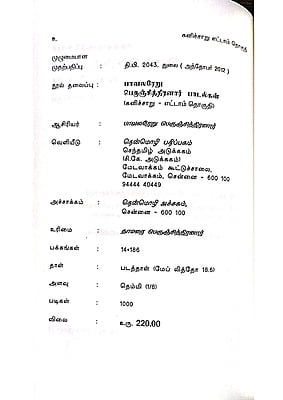 உ கனிச்சாறு எட்டாம் தொகுதி
முழுமையான
முதற்பதிப்பு : தி.பி. 2043, துலை (அந்தோபர் 2012)
நூல் தலைப்பு : பாவலரேறு
பெருஞ்சித்திரனார் பாடல்கள்
(கனிச்சாறு - எட்டாம் தொகுதி)
ஆசிரியர் : பாவலரேறு பெருஞ்சித்திரனார்
வெளியீடு : தென்மொழி பதிப்பகம்
செந்தமிழ் அடுக்ககம்
(சி.கே. அடுக்ககம்)
மேடவாக்கம் கூட்டுச்சாலை,
மேடவாக்கம், சென்னை - 600 100
94444 40449
அச்சாக்கம் : தென்மொழி அச்சகம்,
சென்னை - 600 100
உரிமை : தாமரை பெருஞ்சித்திரனார்
பக்கங்கள் : 14+186
தாள் : படத்தாள் (மேப் லித்தோ 18.6)
அளவு : தெம்மி (1/8)
படிகள் : 1000
விலை : உரு. 220.00